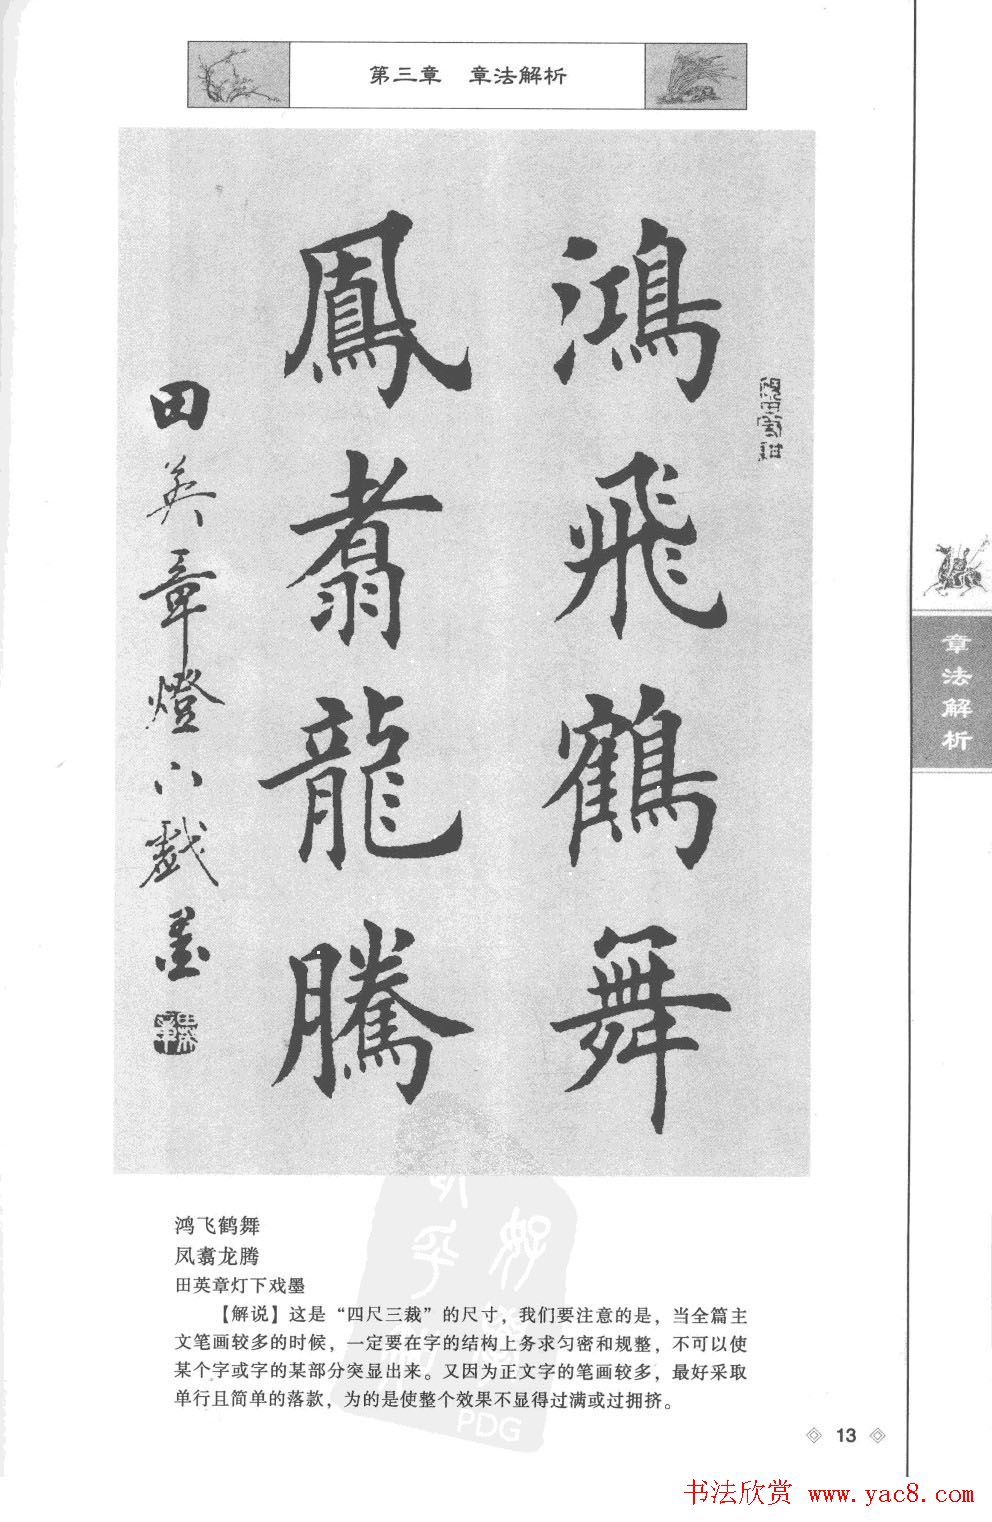 第三章　章法解析
鴻飛鶴舞
鳳翥龍騰
田英章燈下戲墨
章法解析
鸿飞鹤舞
凤翥龙腾
田英章灯下戏墨
【解说】这是“四尺三裁”的尺寸，我们要注意的是，当全篇主
文笔画较多的时候，一定要在字的结构上务求匀密和规整，不可以使
某个字或字的某部分突显出来。又因为正文字的笔画较多，最好采取
单行且简单的落款，为的是使整个效果不显得过满或过拥挤。
PDG
13
书法欣赏 www.yac8.com